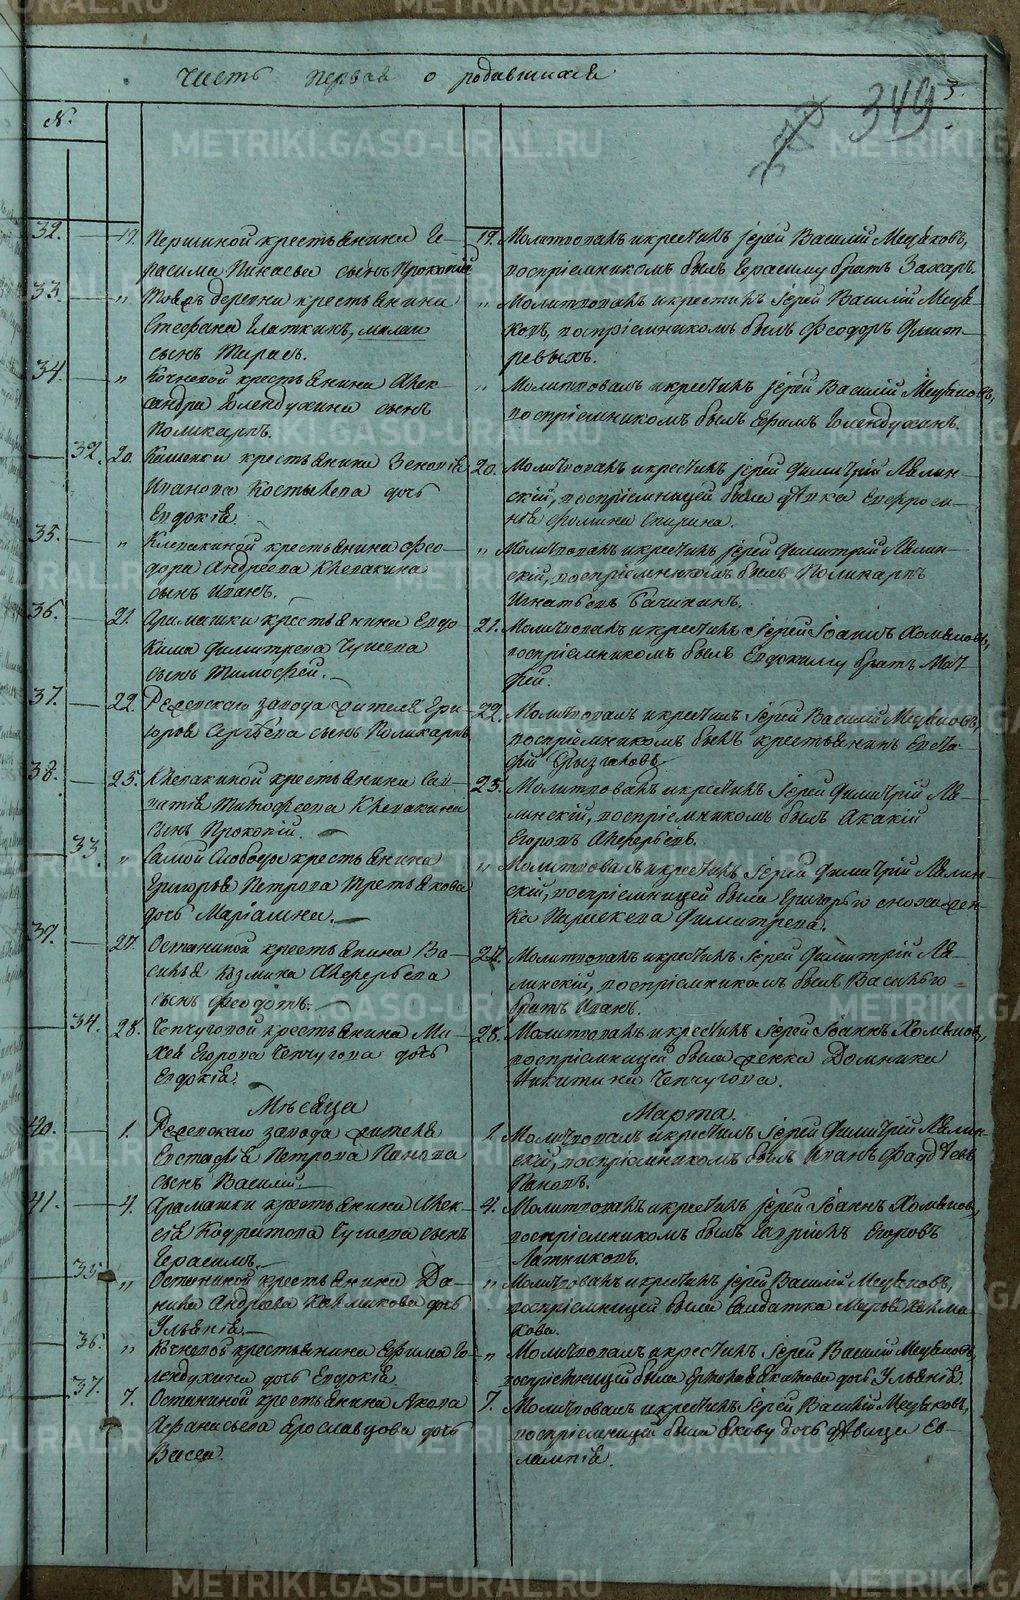 Часть первая о родившихся
3.
349.
№.
32. 19. Першиной крестьянина Ге-
расима Минаева сынъ Прокопій
19. Молитвовалъ и крестилъ іерей Василій Мещряковъ,
воспріемникомъ былъ Герасиму братъ Захаръ.
33. " Тояжъ деревни крестьянина
Стефана
сынъ Тарасъ.
" Молитвовалъ и крестилъ іерей Василій Мещря-
ковъ, воспріемникомъ былъ Феодоръ Дмит-
ревыхъ.
34. " Кочневой крестьянина Алек-
сандра Голендухина сынъ
Поликарпъ.
" Молитвовалъ и крестилъ іерей Василій Мещряковъ,
воспріемникомъ былъ Ефимъ Голендухинъ.
32. 20. Каменки крестьянина Зеновія
Иванова Костылева дочь
Евдокія.
20. Молитвовалъ и крестилъ іерей Димитрій Лялин-
скій, воспріемницей была дѣвка Евфроси-
нія Фомина Спирина.
35. " Клевакиной крестьянина Фео-
дора Андреева Клевакина
сынъ Иванъ.
" Молитвовалъ и крестилъ іерей Димитрій Лялин-
скій, воспріемникомъ былъ Поликарпъ
Игнатьевъ Бачининъ.
36. 21. Арамашки крестьянина Евдо-
кима Димитрева Чушева
сынъ Тимофей.
21. Молитвовалъ и крестилъ іерей Іоаннъ Хомяковъ,
воспріемникомъ былъ Евдокиму братъ Мат-
фей.
37. 22. Режевскаго завода жителя Гри-
горья Сергѣева сынъ Поликарпъ
22. Молитвовалъ и крестилъ іерей Василій Мещряковъ,
воспріемникомъ былъ крестьянинъ
38. 25. Клевакиной крестьянина Са-
ватія Тимофеева Клевакина
сынъ Прокопій.
25. Молитвовалъ и крестилъ іерей Димитрій Ля-
линскій, воспріемникомъ былъ Акакій
Егоровъ Алферьевъ.
33. " Самой Слободы крестьянина
Григорья Петрова Третьякова
дочь Маріамна.
" Молитвовалъ и крестилъ іерей Димитрій Лялин-
скій, воспріемницей была Григорью сноха жен-
ка Параскева Димитрева.
39. 27. Останиной крестьянина Ва-
силья Козмина Алферьева
сынъ Феодотъ.
27. Молитвовалъ и крестилъ іерей Димитрій Ля-
линскій, воспріемникомъ былъ Василью
братъ Иванъ.
34. 28. Чепчуговой крестьянина Ми-
хея Егорова Чепчугова дочь
Евдокія.
28. Молитвовалъ и крестилъ іерей Іоаннъ Хомяковъ,
воспріемницей была женка Домника
Никитина Чепчугова.
Мѣсяца Марта.
40. 1. Режевскаго завода жителя
Евстафія Петрова Панова
сынъ Василій.
1. Молитвовалъ и крестилъ іерей Димитрій Лялин-
скій, воспріемникомъ былъ Иванъ Фаддѣевъ
Пановъ.
41. 4. Арамашки крестьянина Алек-
сія Кодратова Чушева сынъ
Герасимъ.
4. Молитвовалъ и крестилъ іерей Іоаннъ Хомяковъ,
воспріемникомъ былъ Гавріилъ Егоровъ
Латниковъ.
35. " Останиной крестьянина Да-
нила Андреева Калмакова дочь
Ульянія.
" Молитвовалъ и крестилъ іерей Василій Мещряковъ,
воспріемницей была Солдатка Марья Калма-
кова.
36. " Кочневой крестьянина Ефима Го-
лендухина дочь Евдокія.
" Молитвовалъ и крестилъ іерей Василій Мещряковъ,
воспріемницей была дочь Ульянія.
37. 7. Останиной крестьянина Якова
Афанасьева Ярославцова дочь
Васса.
7. Молитвовалъ и крестилъ іерей Василій Мещряковъ,
воспріемницей была Якову дочь дѣвица Ев-
лампія.
METRIKI.GASO-URAL.RU